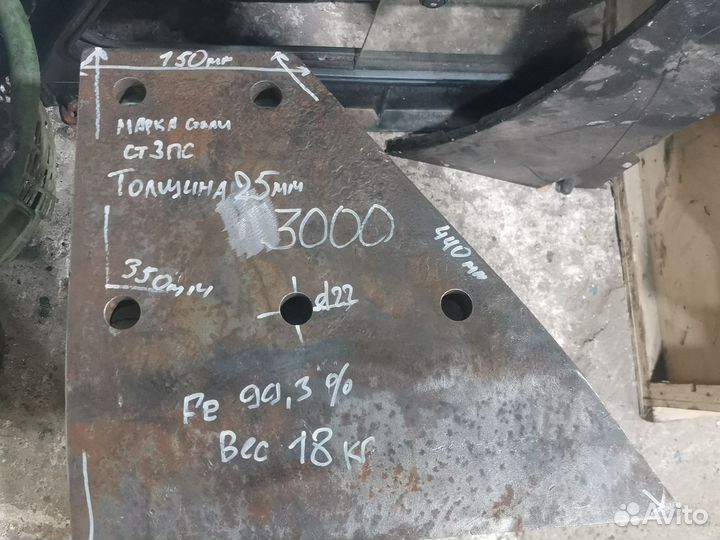 150мм
МАРКА стали
СТ3ПС
ТОЛЩИНА 25мм
3000
440мм
350мм
d22
FE 99,3%
Вес 18 кг
Avito